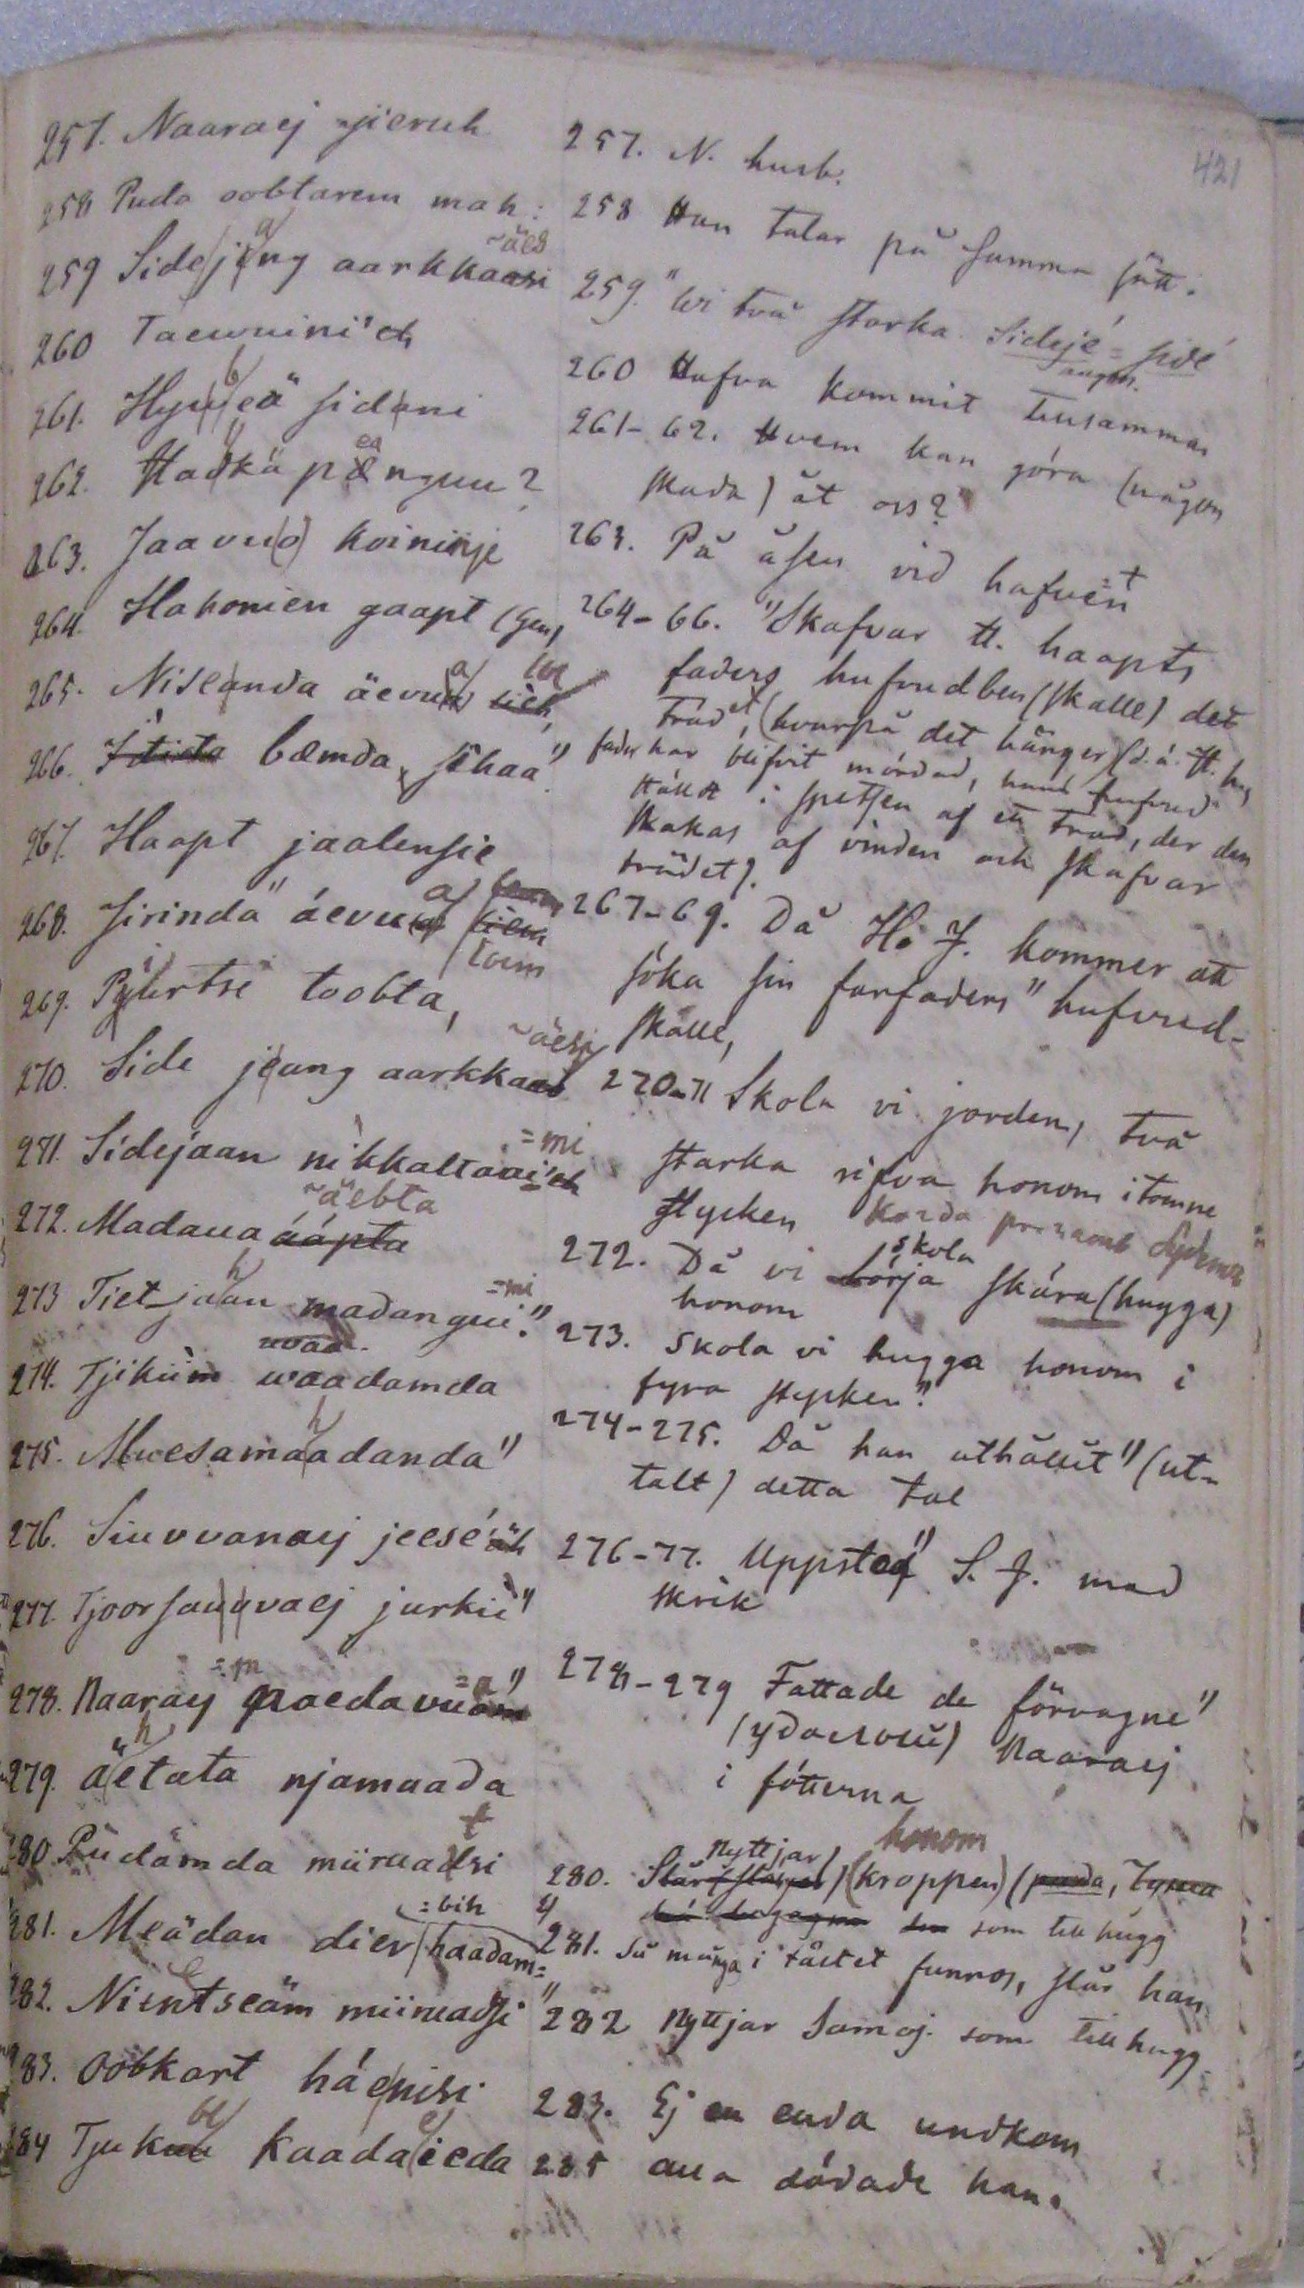 421
257. Naaraej njieruh
258 Puda oobtarem mah:
259 Sidejang aarkkaasi ~äes
260 Taewuini'ch
261. Hyubeä sidani
262. Hadkä pænguu?
263. Jaavuo) koininje
264. Hahonien gaapt (gen,
265. Niseanda äevua
266. bæmda sihaa"
267. Haapt jaalensie
268. Jirinda" áevua toem
269. Pyurtsi toobta,
270. Side jeang aarkkaas ~äesi
271. Sidejaan nikkaltaai'ch =mi
272. Madaua áápta ~äebta
273 Tiet jaan madangui." =mi
274. Tjikiim waadamda
275. Mucesamahadanda"
276. Siuvvanaej jeesé
277. Tjoorsauvaej jurkii"
278. Naaraej paedavuam"
279. äetata njamaada
280 Püdämda miiruadsi
281. Meädan dier haadam= =bih
282. Nientseäm miiruadsi
283. Oobkart háenisi
284 Tjukuu kaadaieda
257. N. husb.
258 Han talar på samma sätt.
259. "Wi två starka Sidejé = sidé
260 Hafva kommit tillsamman
261-62. Hvem kan góra (någon
skada) åt oss?
263. På åsen vid hafvet
264-66. "Skafvar H. haapts
faders hufvudben (skalle) det
träd, (hvarpå det hänger (d.ä. H. hs
fader har blifvit mördad, hans hufvud
stäldt i spetsen af ett träd, der den
skakas af vinden och skafvar
trädet).
267-69. Då H. J. kommer att
söka sin farfaders" hufvud-
skalle,
270-71 Skola vi jorden, två
starka rifva honom i tomne
stycken
272. Då vi skola börja skära (hugga)
honom
273. Skola vi hugga honom i
fyra stycken."
274-275. Då han uthållit" (ut-
talt) detta tal
276-77. Uppsteg" S. J. med
skrik
278-279 Fattade de förvagne"
(удалой) Naaraej
i fötterna
280. nyttjar) (kroppen) honom
som till hugg
281. Så många i tältet funnos, slår han
282 Nyttjar Samoj. som till hugg-
283. Ej en enda undkom
285 alla dödade han.